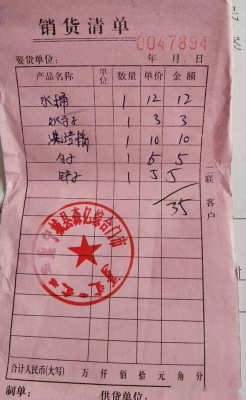 销货清单
0047894
要货单位： 年 月 日
产品名称 单位 数量 单价 金额
水桶 1 12 12
水勺子 1 3 3
垃圾桶 1 10 10
1 5 5
1 5 5
35
二联 客户
综合门市
合计人民币(大写) 万 仟 佰 拾 元 角 分
制单： 供货单位：